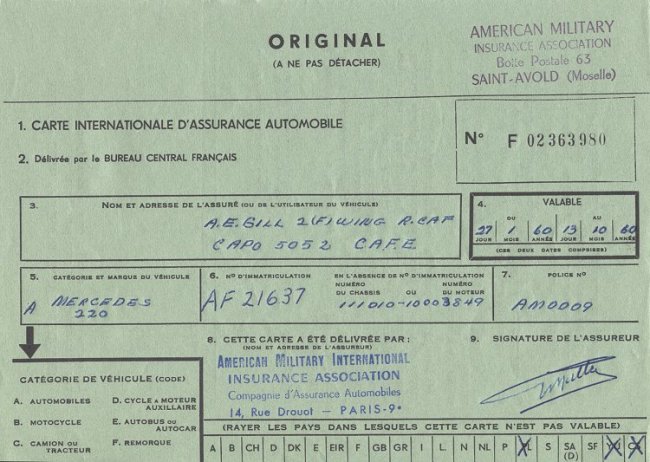 ORIGINAL
(A NE PAS DÉTACHER)
AMERICAN MILITARY
INSURANCE ASSOCIATION
Boite Postale 63
SAINT-AVOLD (Moselle)
1. CARTE INTERNATIONALE D'ASSURANCE AUTOMOBILE
2. Délivrée par le BUREAU CENTRAL FRANÇAIS
N° F 02363980
3. NOM ET ADRESSE DE L'ASSURÉ (OU DE L'UTILISATEUR DU VÉHICULE)
A.E. GILL 2(F) WING R.CAF
CAPO 5052 C.A.F.E
4. VALABLE
DU AU
27 1 60 13 10 60
JOUR MOIS ANNÉE JOUR MOIS ANNÉE
(CES DEUX DATES COMPRISES)
5. CATÉGORIE ET MARQUE DU VÉHICULE
A MERCEDES
220
6. N° D'IMMATRICULATION
AF 21637
EN L'ABSENCE DE N° D'IMMATRICULATION
NUMÉRO NUMÉRO
DU CHASSIS OU DU MOTEUR
111010-10003849
7. POLICE N°
AM0009
8. CETTE CARTE A ÉTÉ DÉLIVRÉE PAR :
(NOM ET ADRESSE DE L'ASSUREUR)
AMERICAN MILITARY INTERNATIONAL
INSURANCE ASSOCIATION
Compagnie d'Assurance Automobiles
14, Rue Drouot — PARIS-9e
9. SIGNATURE DE L'ASSUREUR
CATÉGORIE DE VÉHICULE (CODE)
A. AUTOMOBILES
B. MOTOCYCLE
C. CAMION OU TRACTEUR
D. CYCLE A MOTEUR AUXILLAIRE
E. AUTOBUS OU AUTOCAR
F. REMORQUE
(RAYER LES PAYS DANS LESQUELS CETTE CARTE N'EST PAS VALABLE)
A B CH D DK E EIR F GB GR I L N NL P PL S SA (D) SF YU CS